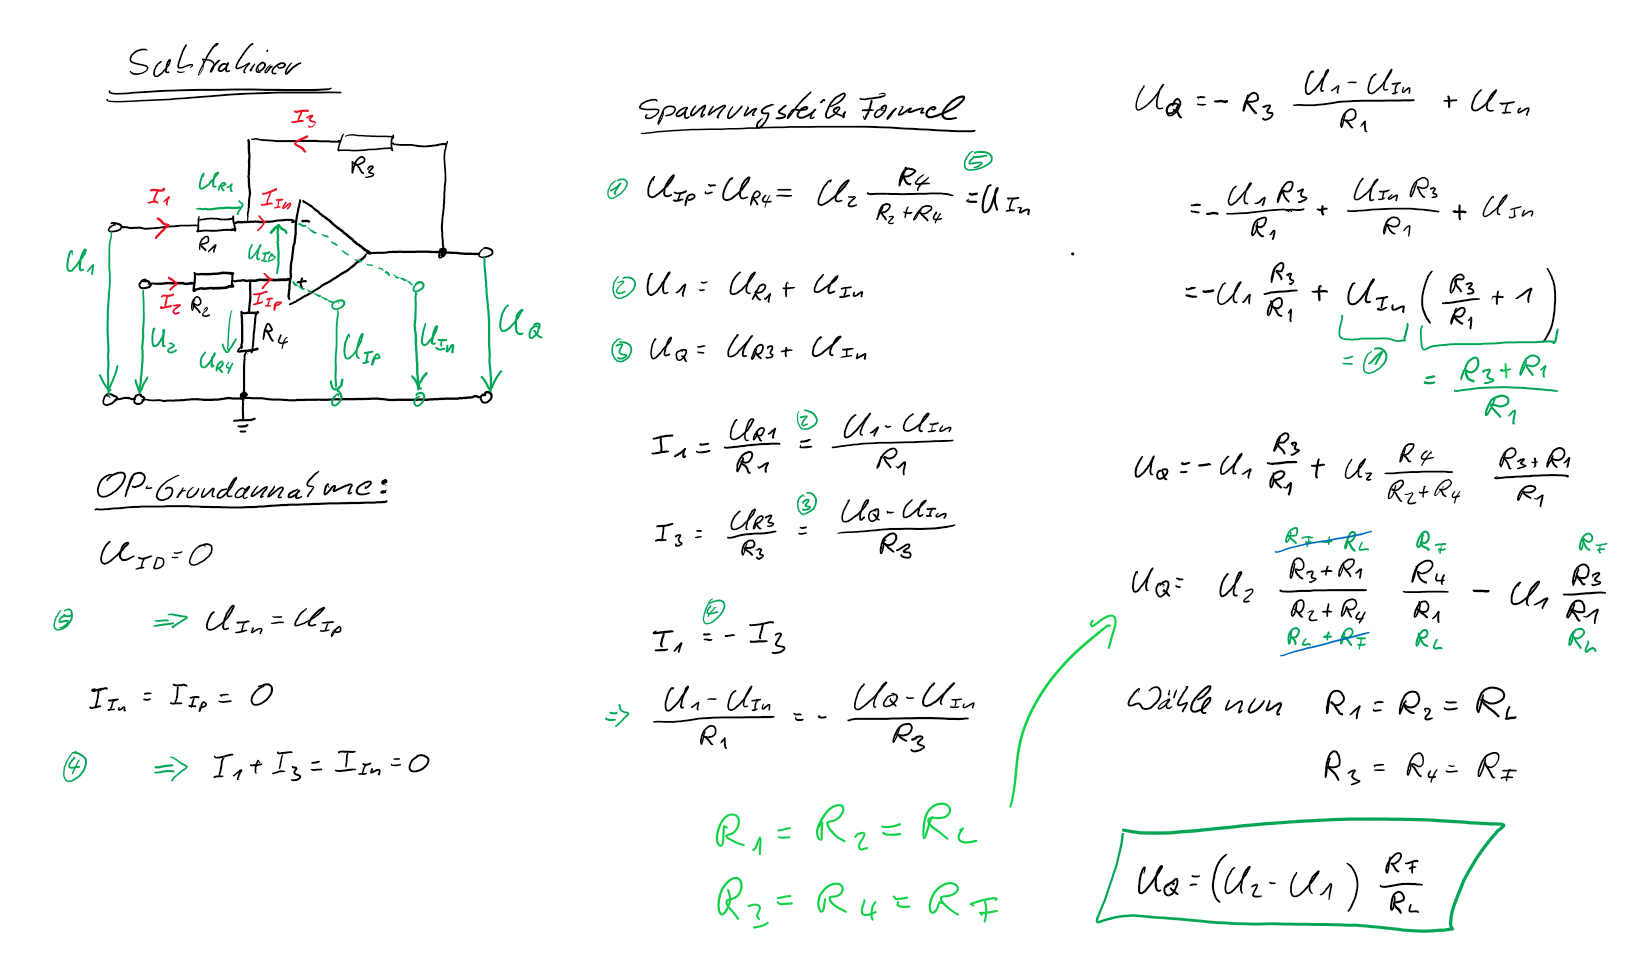 Subtrahierer
I3
R3
UR1
I1
IIn
−
R1
U1
UID
+
I2
R2
IIp
U2
R4
UR4
UIp
UIn
UQ
OP-Grundannahme:
UID = 0
⑤ => UIn = UIp
IIn = IIp = 0
④ => I1 + I3 = IIn = 0
Spannungsteiler Formel
① UIp = UR4 = U2 R4/(R2+R4) =⑤ UIn
② U1 = UR1 + UIn
③ UQ = UR3 + UIn
I1 = UR1/R1 =② (U1 - UIn)/R1
I3 = UR3/R3 =③ (UQ - UIn)/R3
I1 =④ - I3
=> (U1 - UIn)/R1 = - (UQ - UIn)/R3
R1 = R2 = RL
R3 = R4 = RF
UQ = - R3 (U1 - UIn)/R1 + UIn
= - U1 R3/R1 + UIn R3/R1 + UIn
= - U1 R3/R1 + UIn (R3/R1 + 1)
= ①
= (R3 + R1)/R1
UQ = - U1 R3/R1 + U2 R4/(R2+R4) (R3+R1)/R1
RF + RL RF RF
UQ = U2 (R3+R1)/(R2+R4) R4/R1 - U1 R3/R1
RL + RF RL RL
Wähle nun R1 = R2 = RL
R3 = R4 = RF
UQ = (U2 - U1) RF/RL